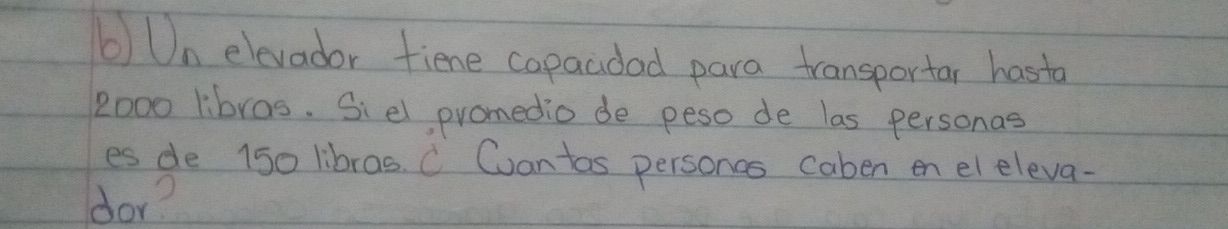 b) Un elevador tiene capacidad para transportar hasta
2000 libras. Si el promedio de peso de las personas
es de 150 libras. ¿ Cuantas personas caben en el eleva-
dor?